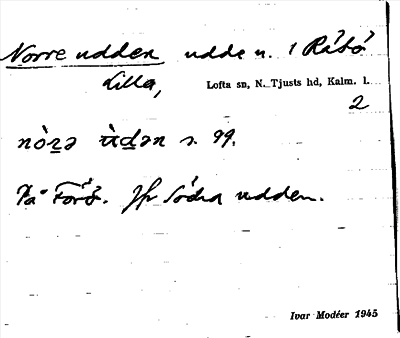 Norre udden udde n. i Råbö
Lilla, Lofta sn, N. Tjusts hd, Kalm. l.
2
nòrə ùdən s. 99.
På Forö. Jfr Södra udden.
Ivar Modéer 1945